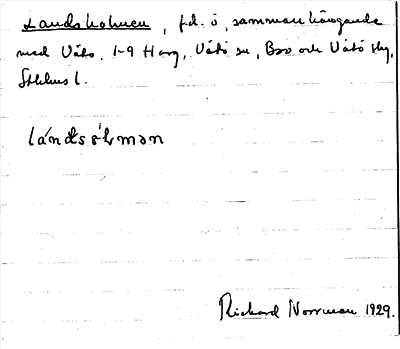 Landsholmen, f.d. ö, sammanhängande
med Vätö. 1-9 Harg, Vätö sn, Bro och Vätö skg,
Sthlms l.
lándsɷ̀lmən
Rickard Norrman 1929.